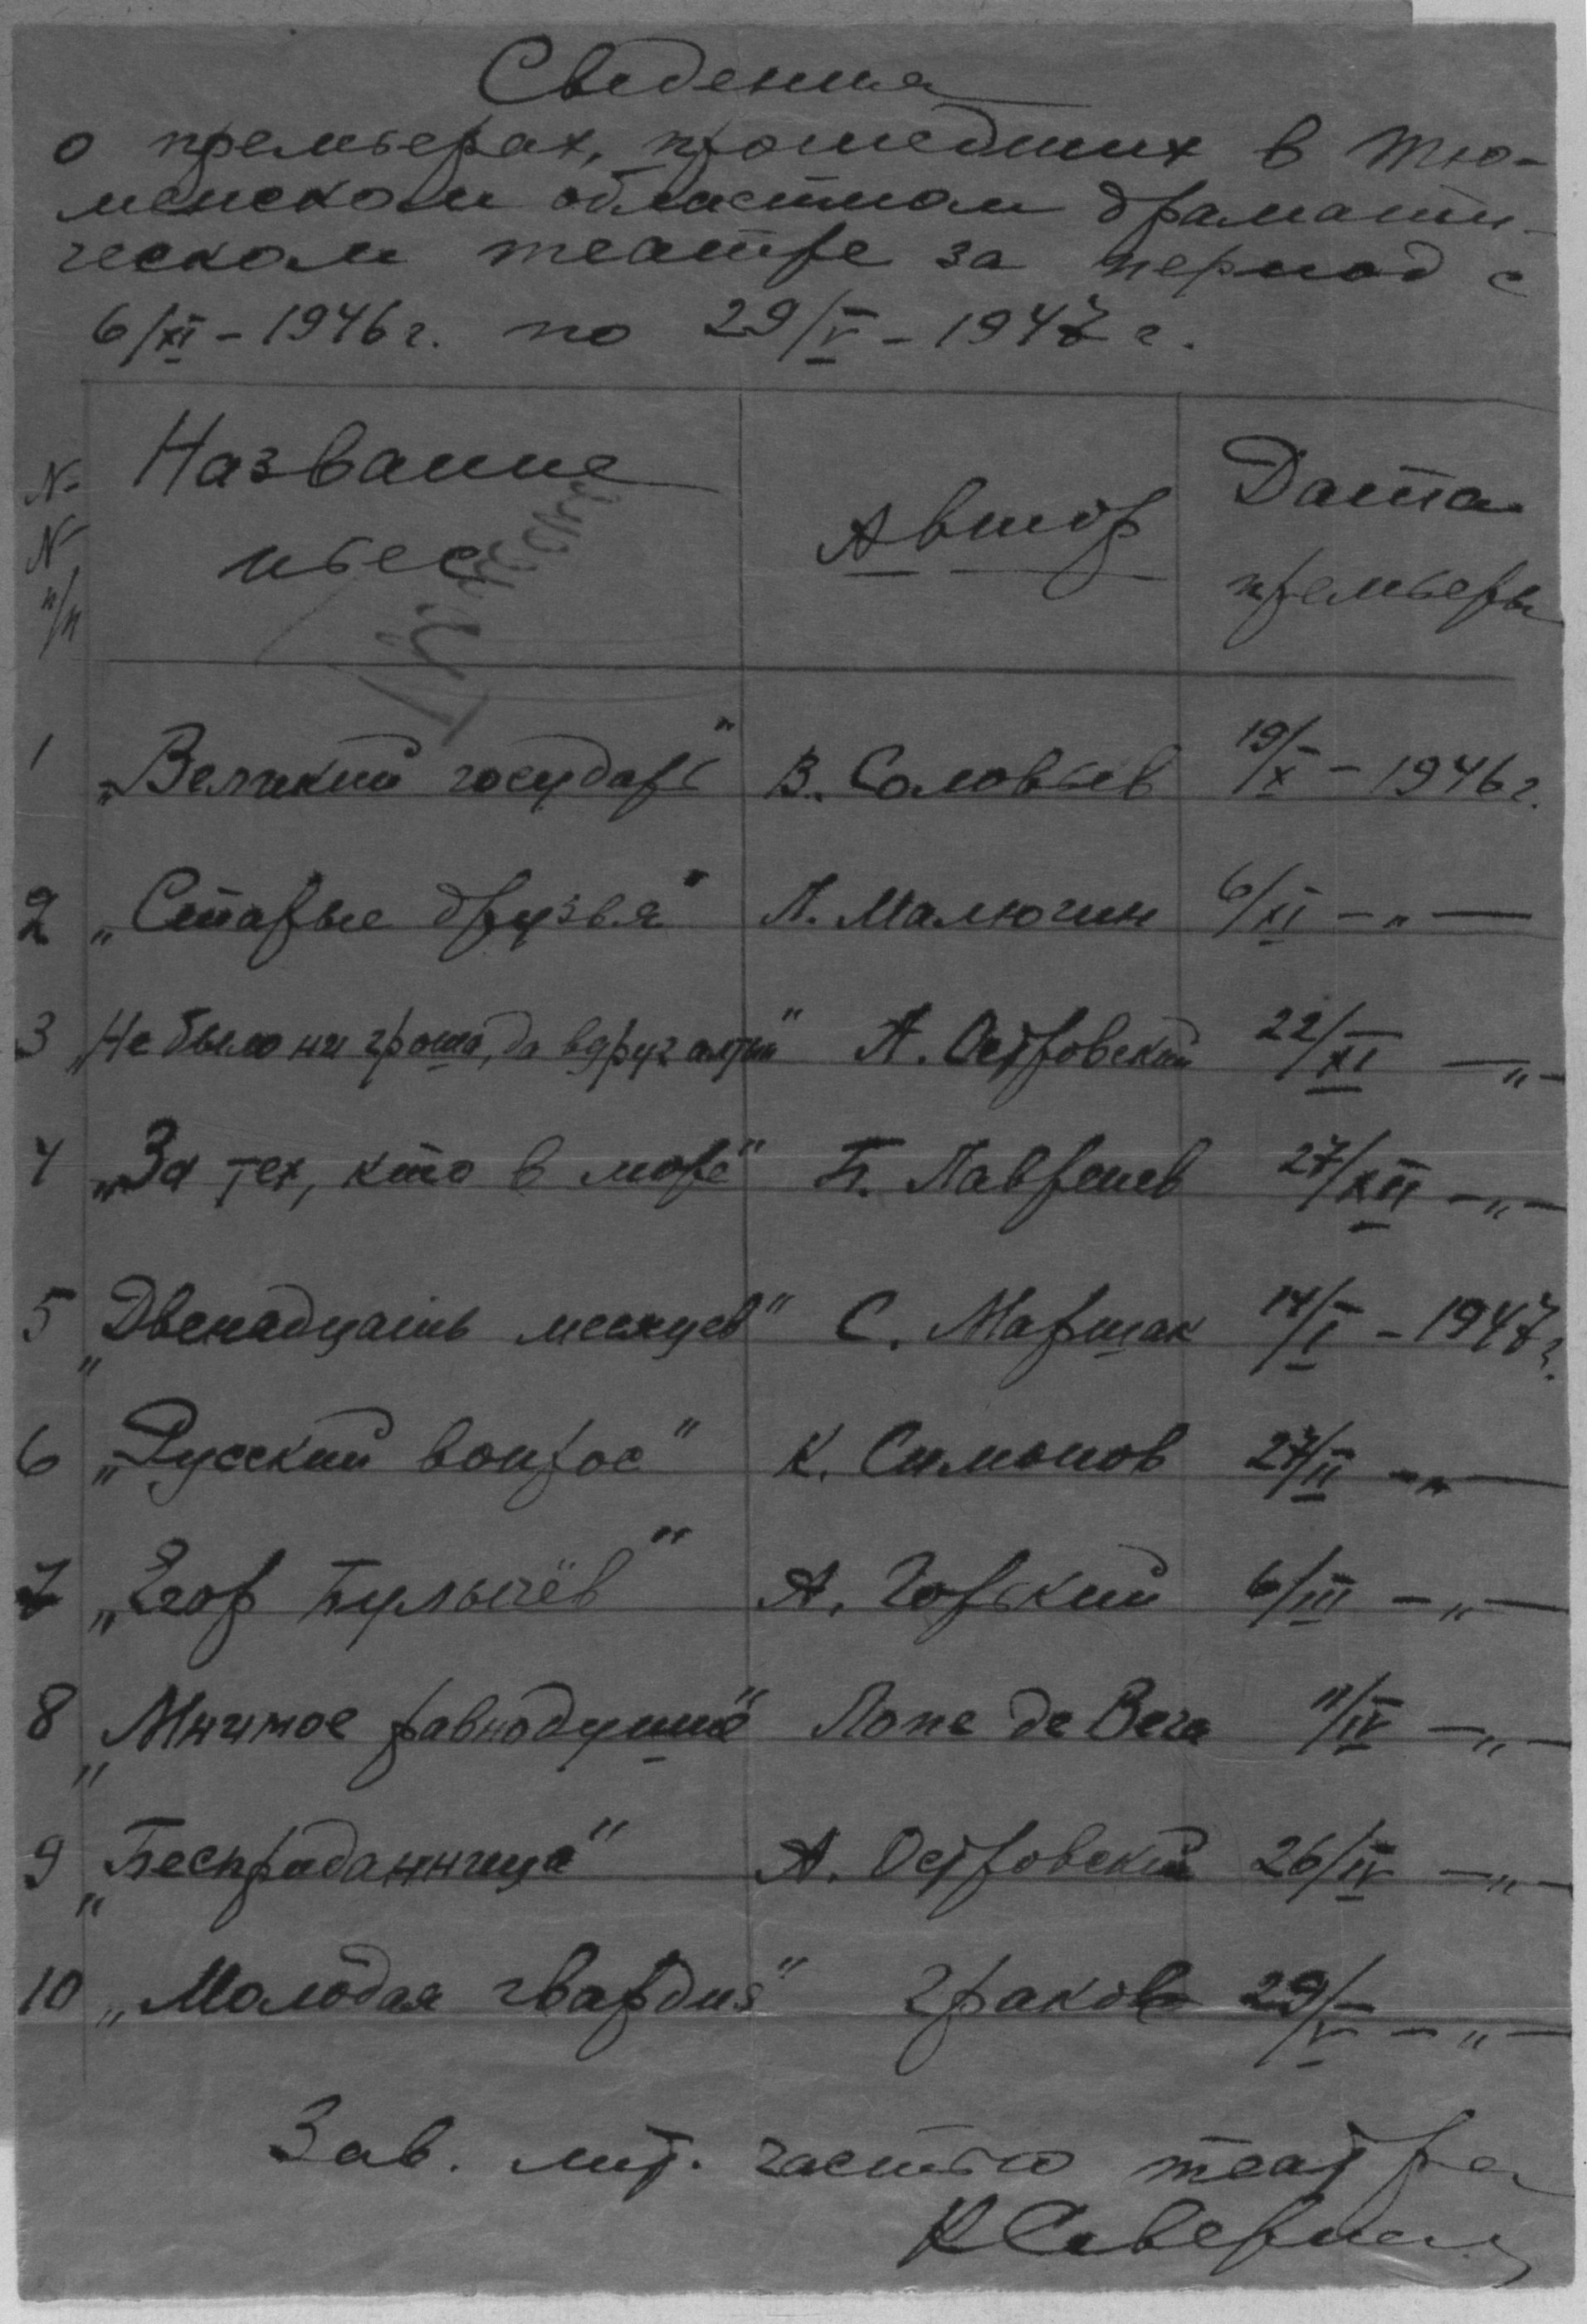 Сведения
о премьерах, прошедших в Тю-
менском областном драмати-
ческом театре за период с
6/XI - 1946 г. по 29/V - 1947 г.
N- N- п/п Название пьес Автор Дата премьеры
1 „Великий государь" В. Соловьев 19/X - 1946 г.
2 „Старые друзья" Л. Малюгин 6/XI - „ -
3 „Не было ни гроша, да вдруг алтын" А. Островский 22/XI - „ -
4 „За тех, кто в море" Б. Лавренев 27/XII - „ -
5 „Двенадцать месяцев" С. Маршак 14/I - 1947 г.
6 „Русский вопрос" К. Симонов 27/II - „ -
7 „Егор Булычёв" А. Горький 6/III - „ -
8 „Мнимое равнодушие" Лопе де Вега 11/IV - „ -
9 „Бесприданница" А. Островский 26/IV - „ -
10 „Молодая гвардия" Граков 29/V - „ -
Зав. лит. частью театра